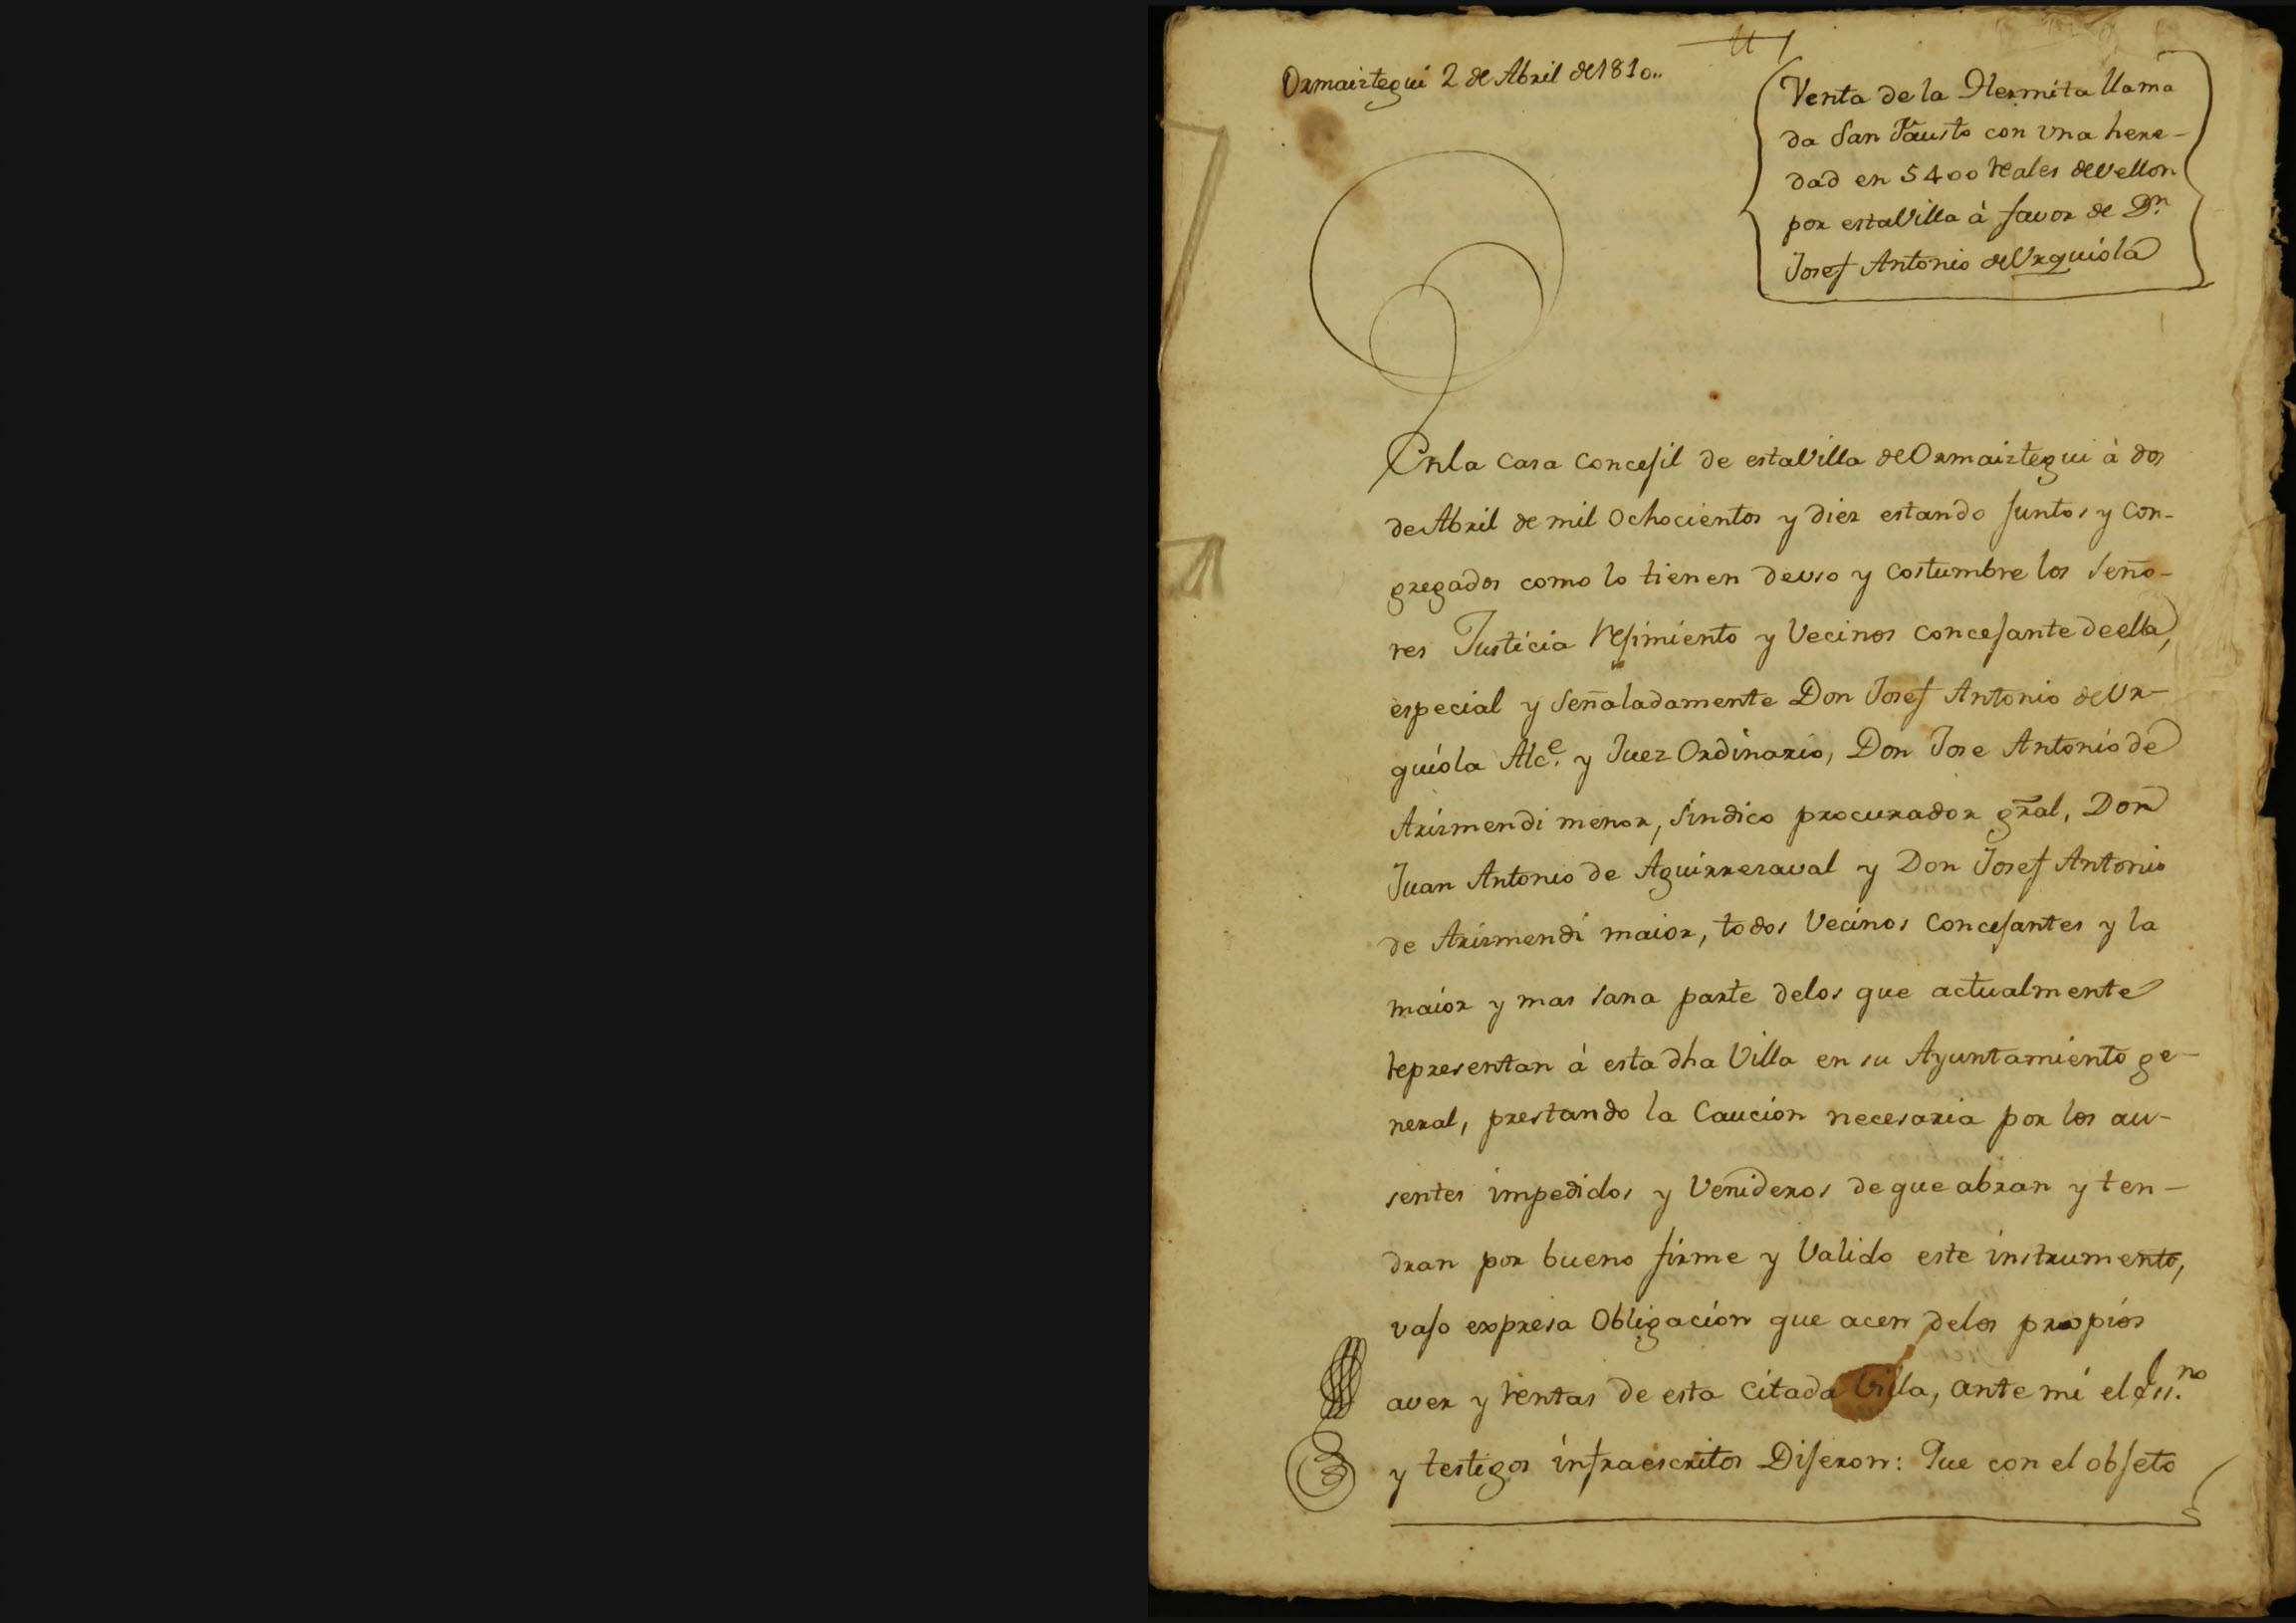 Ormaiztegui 2 de Abril de 1810..
Venta de la Hermita llama
da San Fausto con vna here-
dad en 5400 reales de vellon
por esta Villa à favor de Dn.
Josef Antonio de Urquiola
En la Casa Concejil de esta Villa de Ormaiztegui à dos
de Abril de mil ochocientos y diez estando juntos y con-
gregados como lo tienen de uso y costumbre los Seño-
res Justicia rejimiento y Vecinos concejante de ella,
especial y señaladamente Don Josef Antonio de Ur-
quiola Alce. y Juez Ordinario, Don Jose Antonio de
Arizmendi menor, síndico procurador gral, Don
Juan Antonio de Aguirrezaval y Don Josef Antonio
de Arizmendi maior, todos Vecinos Concejantes y la
maior y mas sana parte de los que actualmente
representan à esta dha Villa en su Ayuntamiento ge-
neral, prestando la Caución necesaria por los au-
sentes impedidos y Venideros de que abran y ten-
dran por bueno firme y Valido este instrumento,
vajo expresa Obligación que acen de los propios
aver y rentas de esta citada Villa, ante mi el Essno.
y testigos infraescritos Dijeron: Que con el objeto